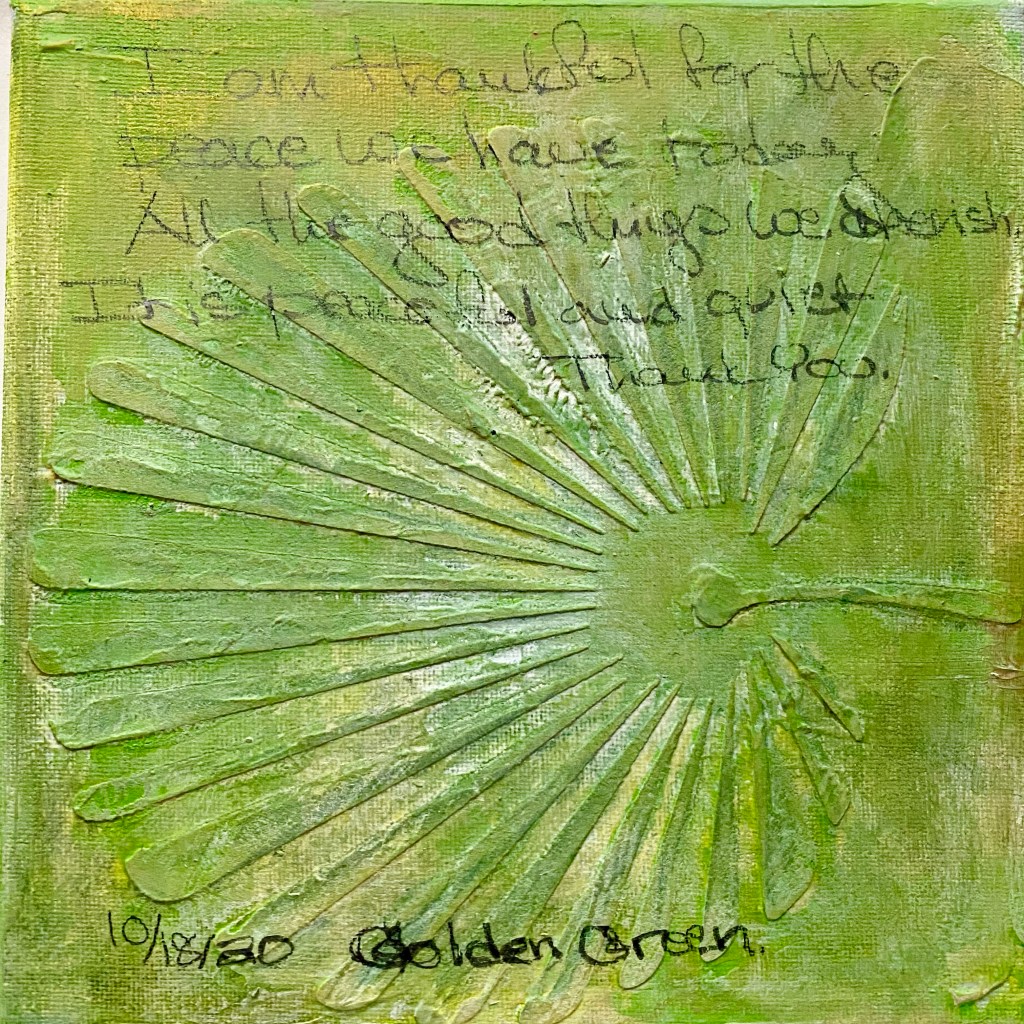 I am thankful for the
peace we have today
All the good things we cherish.
It is peaceful and quiet
Thank You.
10/18/20 Golden Green.